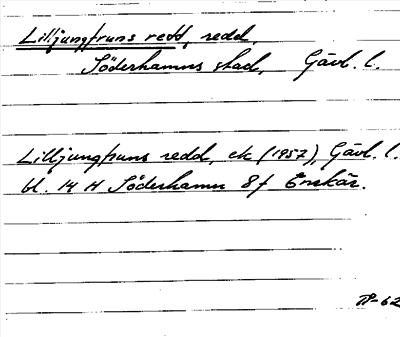 Lilljungfruns redd, redd.
Söderhamns stad, Gävl. l.
Lilljungfruns redd, ek (1957), Gävl. l.
bl. 14 H Söderhamn 8 f Enskär.
TP-62